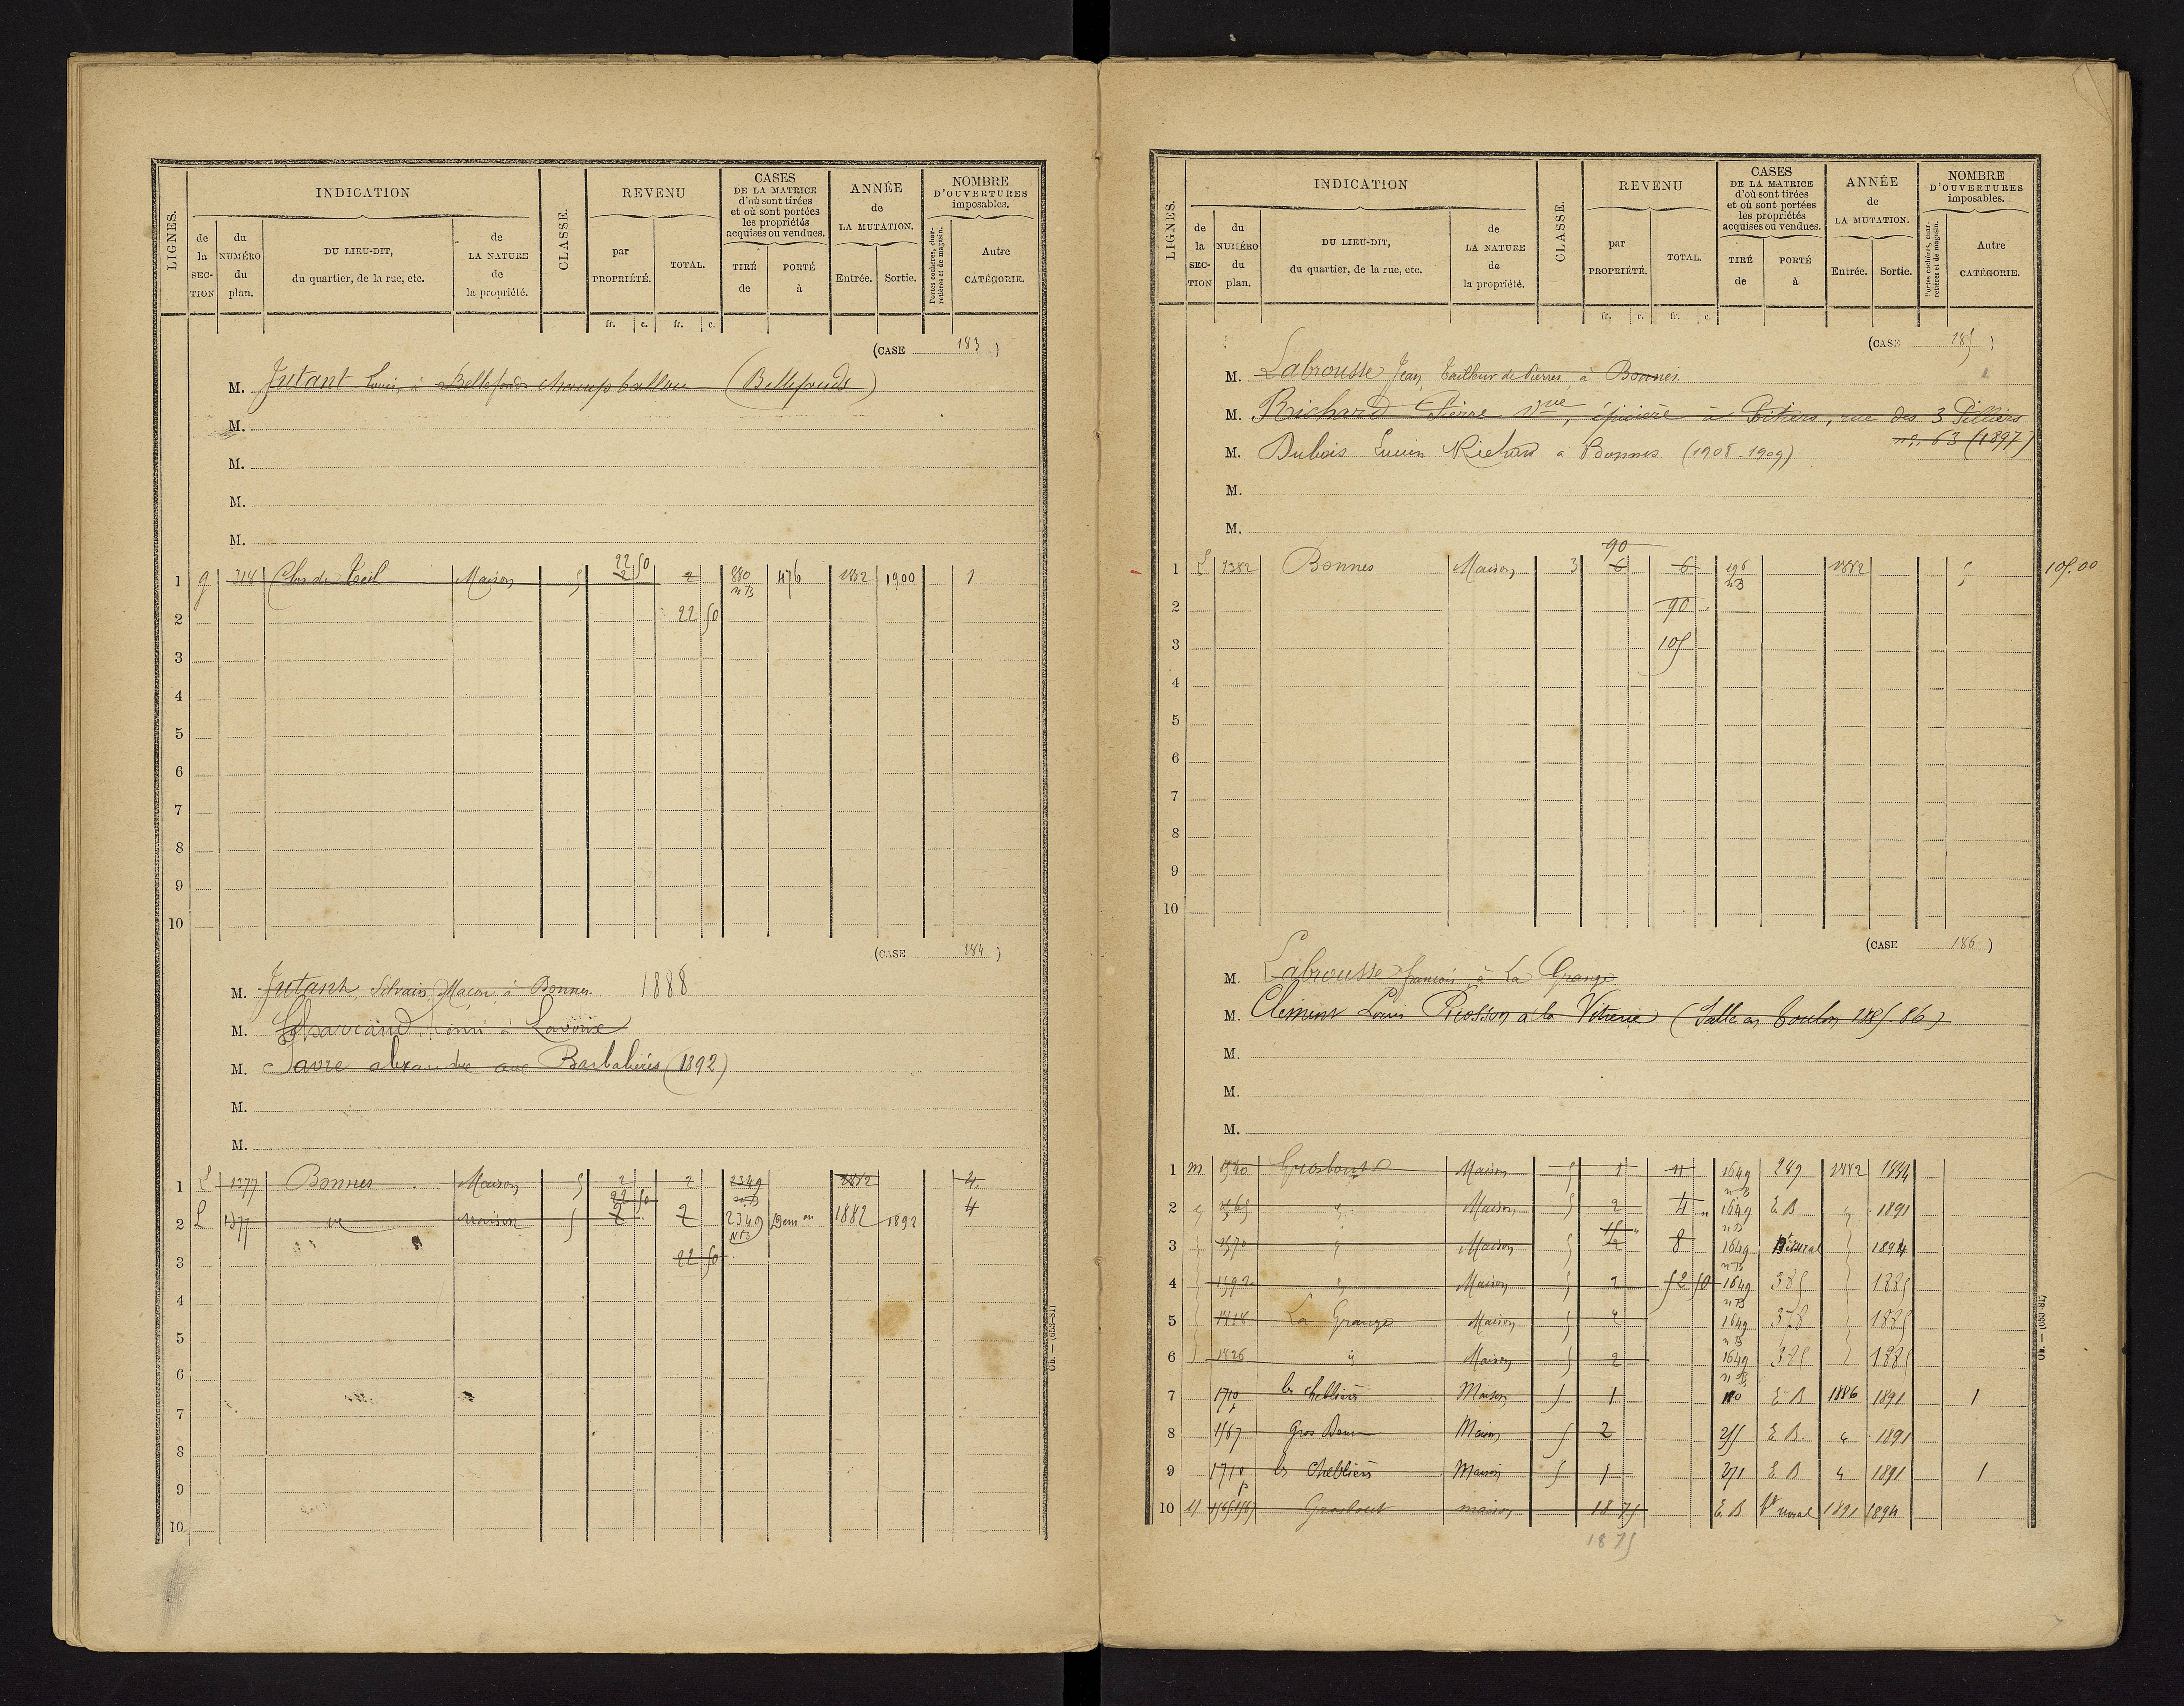 LIGNES.
INDICATION
de la SECTION
du NUMÉRO du plan.
DU LIEU-DIT, du quartier, de la rue, etc.
de LA NATURE de la propriété.
CLASSE.
REVENU
par PROPRIÉTÉ.
TOTAL.
fr. c. fr. c.
CASES DE LA MATRICE d'où sont tirées et où sont portées les propriétés acquises ou vendues.
TIRÉ de
PORTÉ à
ANNÉE de LA MUTATION.
Entrée. Sortie.
NOMBRE D'OUVERTURES imposables.
Portes cochères, charretières et de magasin.
Autre CATÉGORIE.
(CASE 183)
M. Jutant Louis, à Bellefonds champ ballou (Bellefonds)
M.
M.
M.
M.
22 50
1 g 214 Clos du Teil Maison 5 2 2 880 476 1882 1900 1
n B
2 22 50
3
4
5
6
7
8
9
10
(CASE 184)
M. Jutant Silvain, Maçon, à Bonnes. 1888
M. Henri à Lavoux
M. Favre alexandre aux Barbalières (1892)
M.
M.
1 L 1377 Bonnes Maison 5 2 2 2349 1882 4
22 50 n B
2 L 1377 id maison 5 2 2 2349 Dem on 1882 1892 4
NB
3 22 50
4
5
6
7
8
9
10
Ob. — (653-81)
LIGNES.
INDICATION
de la SECTION
du NUMÉRO du plan.
DU LIEU-DIT, du quartier, de la rue, etc.
de LA NATURE de la propriété.
CLASSE.
REVENU
par PROPRIÉTÉ.
TOTAL.
fr. c. fr. c.
CASES DE LA MATRICE d'où sont tirées et où sont portées les propriétés acquises ou vendues.
TIRÉ de
PORTÉ à
ANNÉE de LA MUTATION.
Entrée. Sortie.
NOMBRE D'OUVERTURES imposables.
Portes cochères, charretières et de magasin.
Autre CATÉGORIE.
(CASE 185)
M. Labrousse Jean, tailleur de Pierres, à Bonnes.
M. Richard Pierre Vve, épicière à Poitiers, rue des 3 Pilliers
n°. 63 (1897)
M. Dubois Lucien Richard à Bonnes (1908-1909)
M.
M.
90
1 L 1382 Bonnes Maison 3 6 6 196 1882 5 105.00
n B
2 90
3 105
4
5
6
7
8
9
10
(CASE 186)
M. Labrousse francois, à La Grange.
M. Clément Louis Picosson à la Vitrerie (Salle an Toulon 1885.86)
M.
M.
M.
1 m 1540 Grosbout Maison 5 1 11 1649 289 1882 1884
n B
2 " 1565 " Maison 5 2 4 1649 E B " 1891
n B
3 " 1570 " Maison 5 2 8 1649 Bt rural " 1894
n B
4 " 1592 " Maison 5 2 52 50 1649 385 " 1885
n B
5 " 1418 La Grange Maison 5 2 1649 378 " 1885
n B
6 " 1426 id Maison 5 2 1649 385 " 1885
n B
7 1710 les chelliers Maison 5 1 180 E B 1886 1891 1
8 1567 Gros Bou Maison 5 2 255 E B. " 1891
9 1710 p les chelliers Maison 5 1 271 E B " 1891 1
10 M 1565 1567 Grosbout maison 18 75 E. B Bt rural 1891 1894
18 75
Ob. — (653-81)